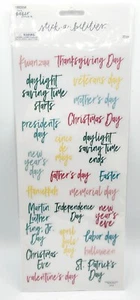 Thanksgiving Day
daylight
saving time
starts
veteran's day
father's day
presidents
day
Christmas Day
new
year's
day
daylight
saving time
ends
cinco
de
mayo
Easter
Hanukkah
memorial day
Martin
Luther
King, Jr.
Day
Independence
Day
april
fools
day
new
year's
eve
labor day
Christmas
Eve
halloween
St. Patrick's
Day
valentine's day